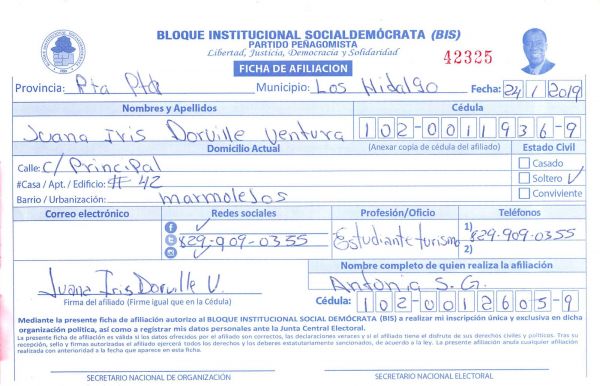 BLOQUE INSTITUCIONAL SOCIALDEMÓCRATA (BIS)
PARTIDO PEÑAGOMISTA
Libertad, Justicia, Democracia y Solidaridad
42325
FICHA DE AFILIACION
Provincia: Pta Pta Municipio: Los Hidalgo Fecha: 24/1/2019
Nombres y Apellidos Cédula
Juana Iris Dorville Ventura 102-0011936-9
Domicilio Actual (Anexar copia de cédula del afiliado) Estado Civil
Calle: C/ Principal Casado
#Casa / Apt. / Edificio: # 42 Soltero ✓
Barrio / Urbanización: marmolejos Conviviente
Correo electrónico Redes sociales Profesión/Oficio Teléfonos
829-909-0355 Estudiante turismo 1) 829-909-0355
2)
Nombre completo de quien realiza la afiliación
Juana Iris Dorville V. Antonia S. G.
Firma del afiliado (Firme igual que en la Cédula) Cédula: 102-0012605-9
Mediante la presente ficha de afiliación autorizo al BLOQUE INSTITUCIONAL SOCIAL DEMÓCRATA (BIS) a realizar mi inscripción única y exclusiva en dicha
organización política, así como a registrar mis datos personales ante la Junta Central Electoral.
La presente ficha de afiliación es válida si los datos ofrecidos por el afiliado son correctos, las declaraciones veraces y si el afiliado tiene el disfrute de sus derechos civiles y políticos. Tras su
recepción, sello y firmas autorizadas el afiliado ejercerá todos los derechos y los deberes estatutariamente sancionados, de acuerdo a la ley. La presente afiliación anula cualquier afiliación
realizada con anterioridad a la fecha que aparece en esta ficha.
SECRETARIO NACIONAL DE ORGANIZACIÓN SECRETARIO NACIONAL ELECTORAL